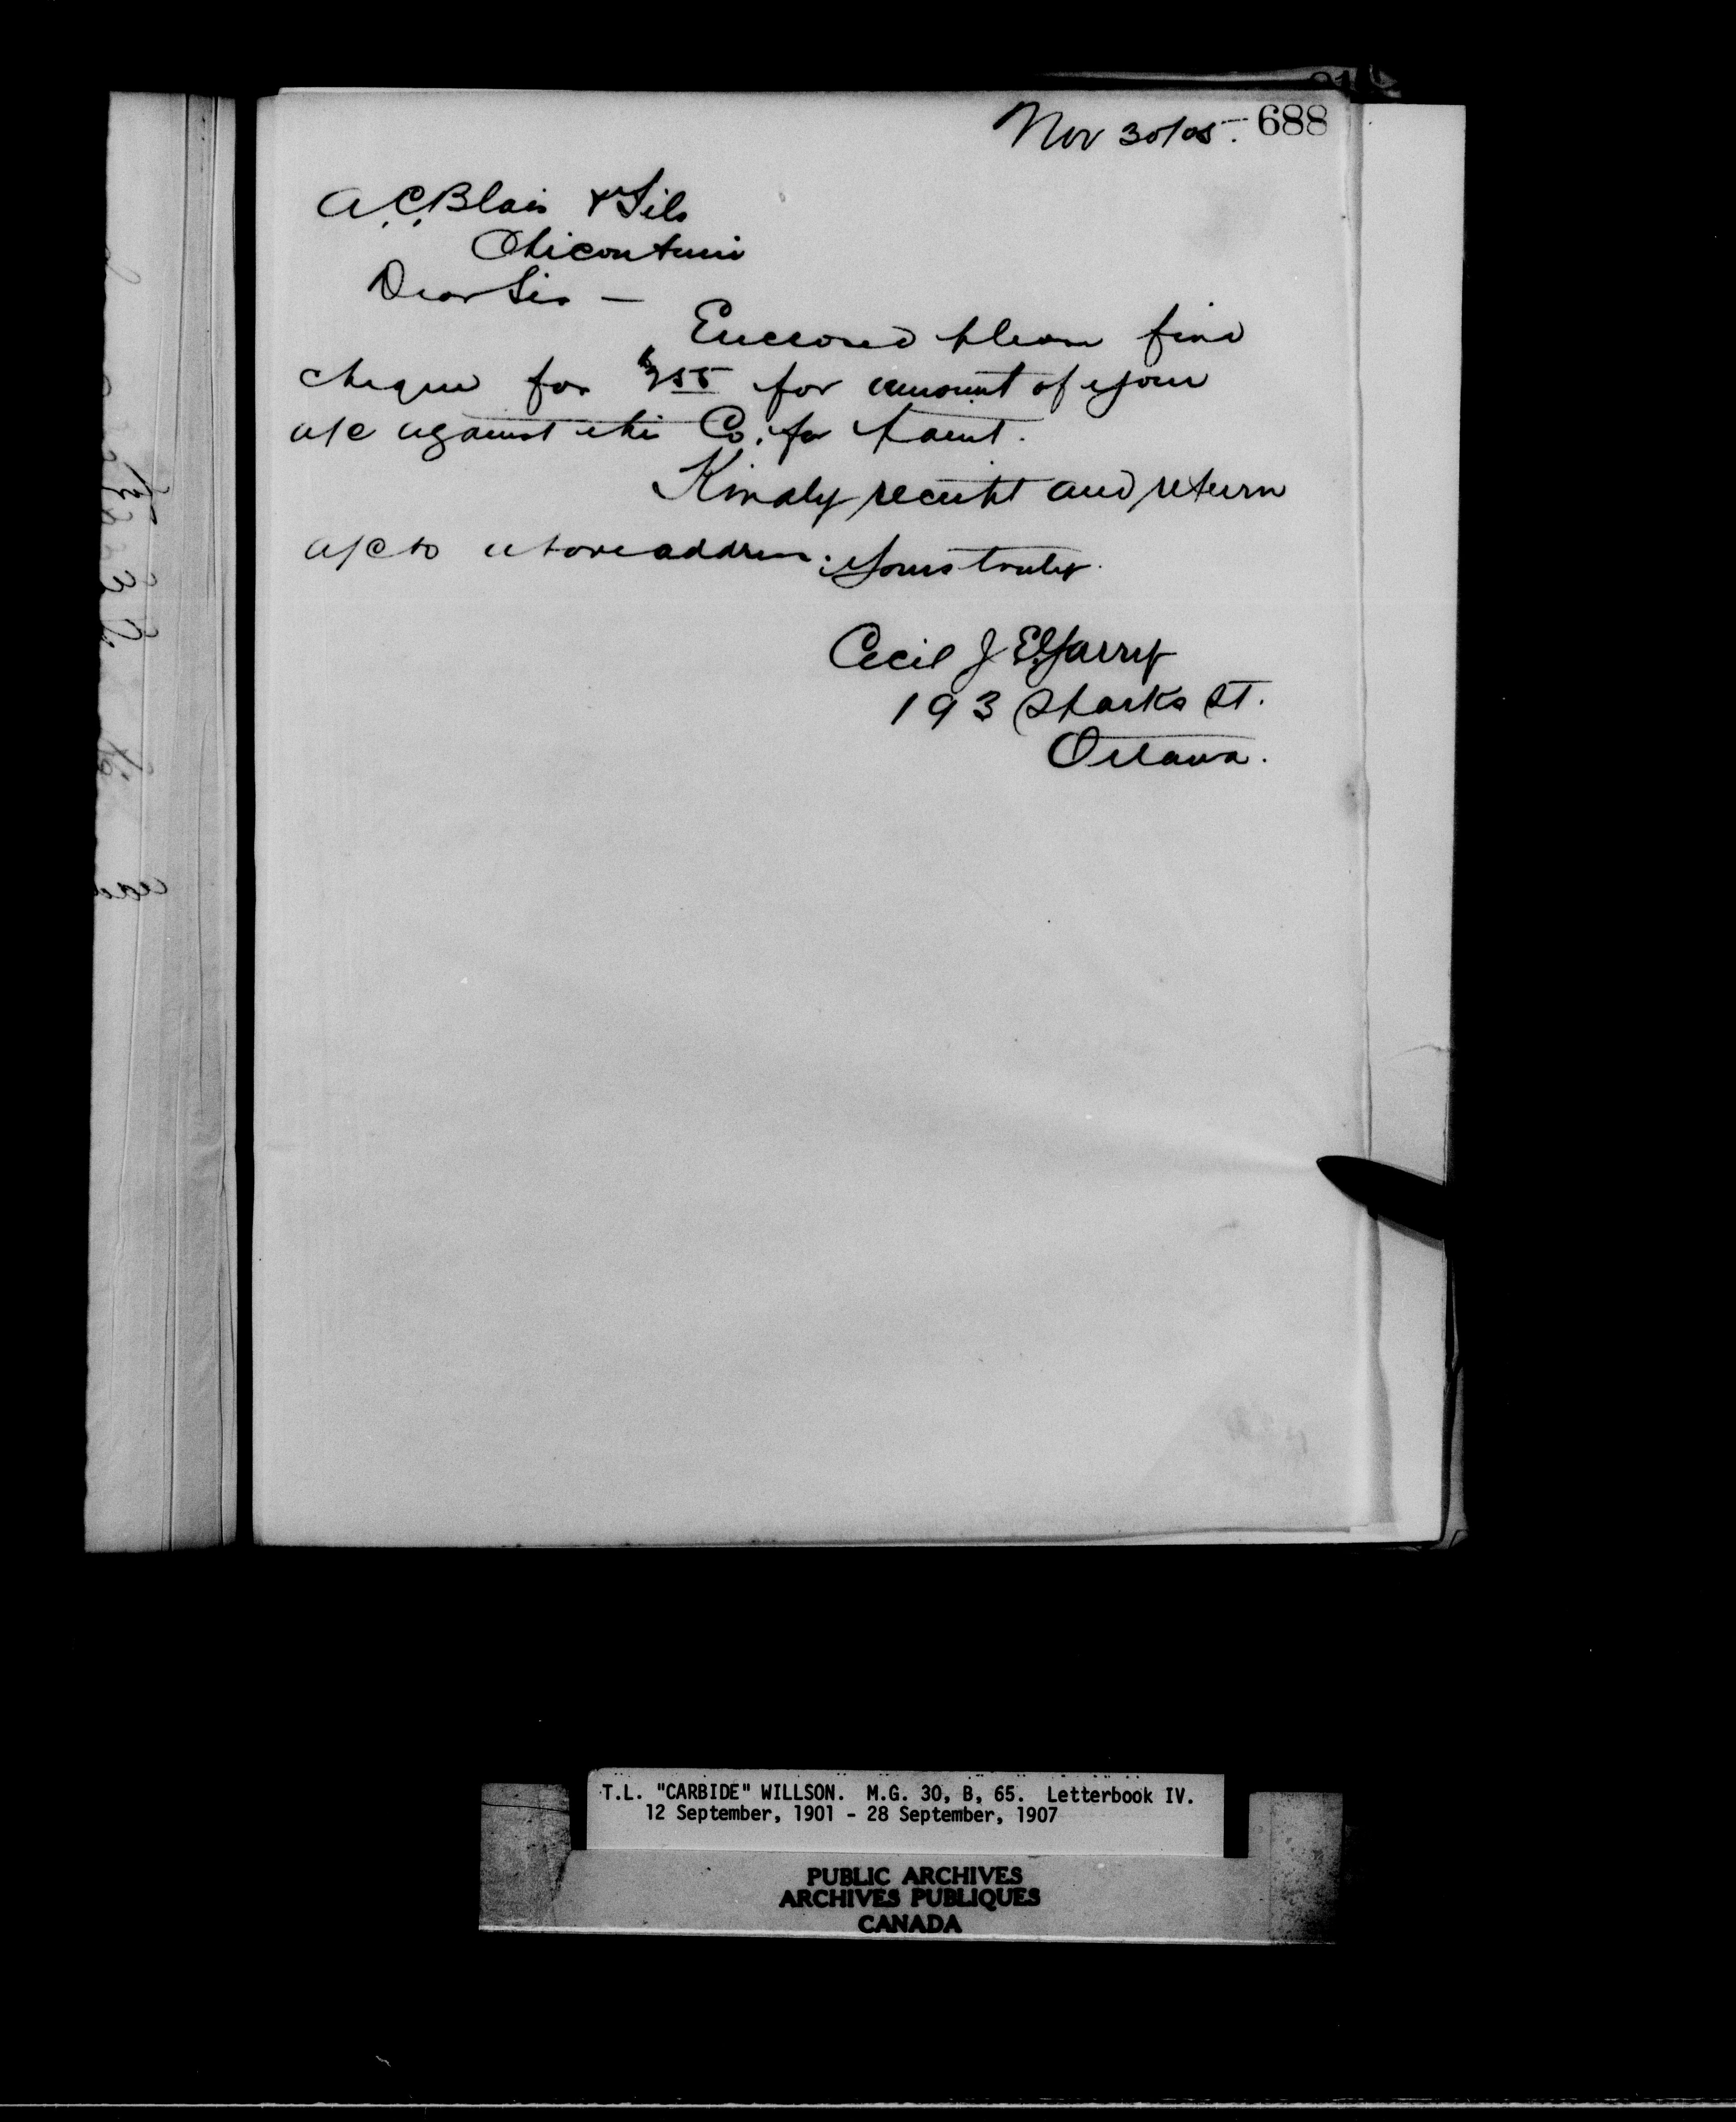 Nov 30/05. 688
A.C. Blais & Fils
Chicoutimi
Dear Sir —
Enclosed please find
cheque for $2 55 for amount of your
a/c against the Co. for paint.
Kindly receipt and return
a/c to above address. Yours truly.
Cecil J
193 Sparks St.
Ottawa.
T.L. "CARBIDE" WILLSON. M.G. 30, B, 65. Letterbook IV.
12 September, 1901 - 28 September, 1907
PUBLIC ARCHIVES
ARCHIVES PUBLIQUES
CANADA